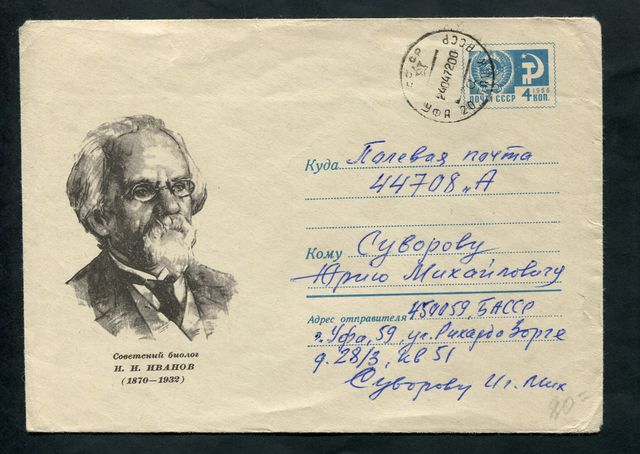 СССР
УФА
2404 7200
ПОЧТА СССР
1966
4 КОП.
Куда Полевая почта
44708 „А
Кому Суворову
Юрию Михайловичу
Адрес отправителя 450059, БАССР
г. Уфа, 59, ул. Рихарда Зорге
д. 28/3, кв 51
Суворову Иг. Мих
Советский биолог
И. И. ИВАНОВ
(1870—1932)
20=